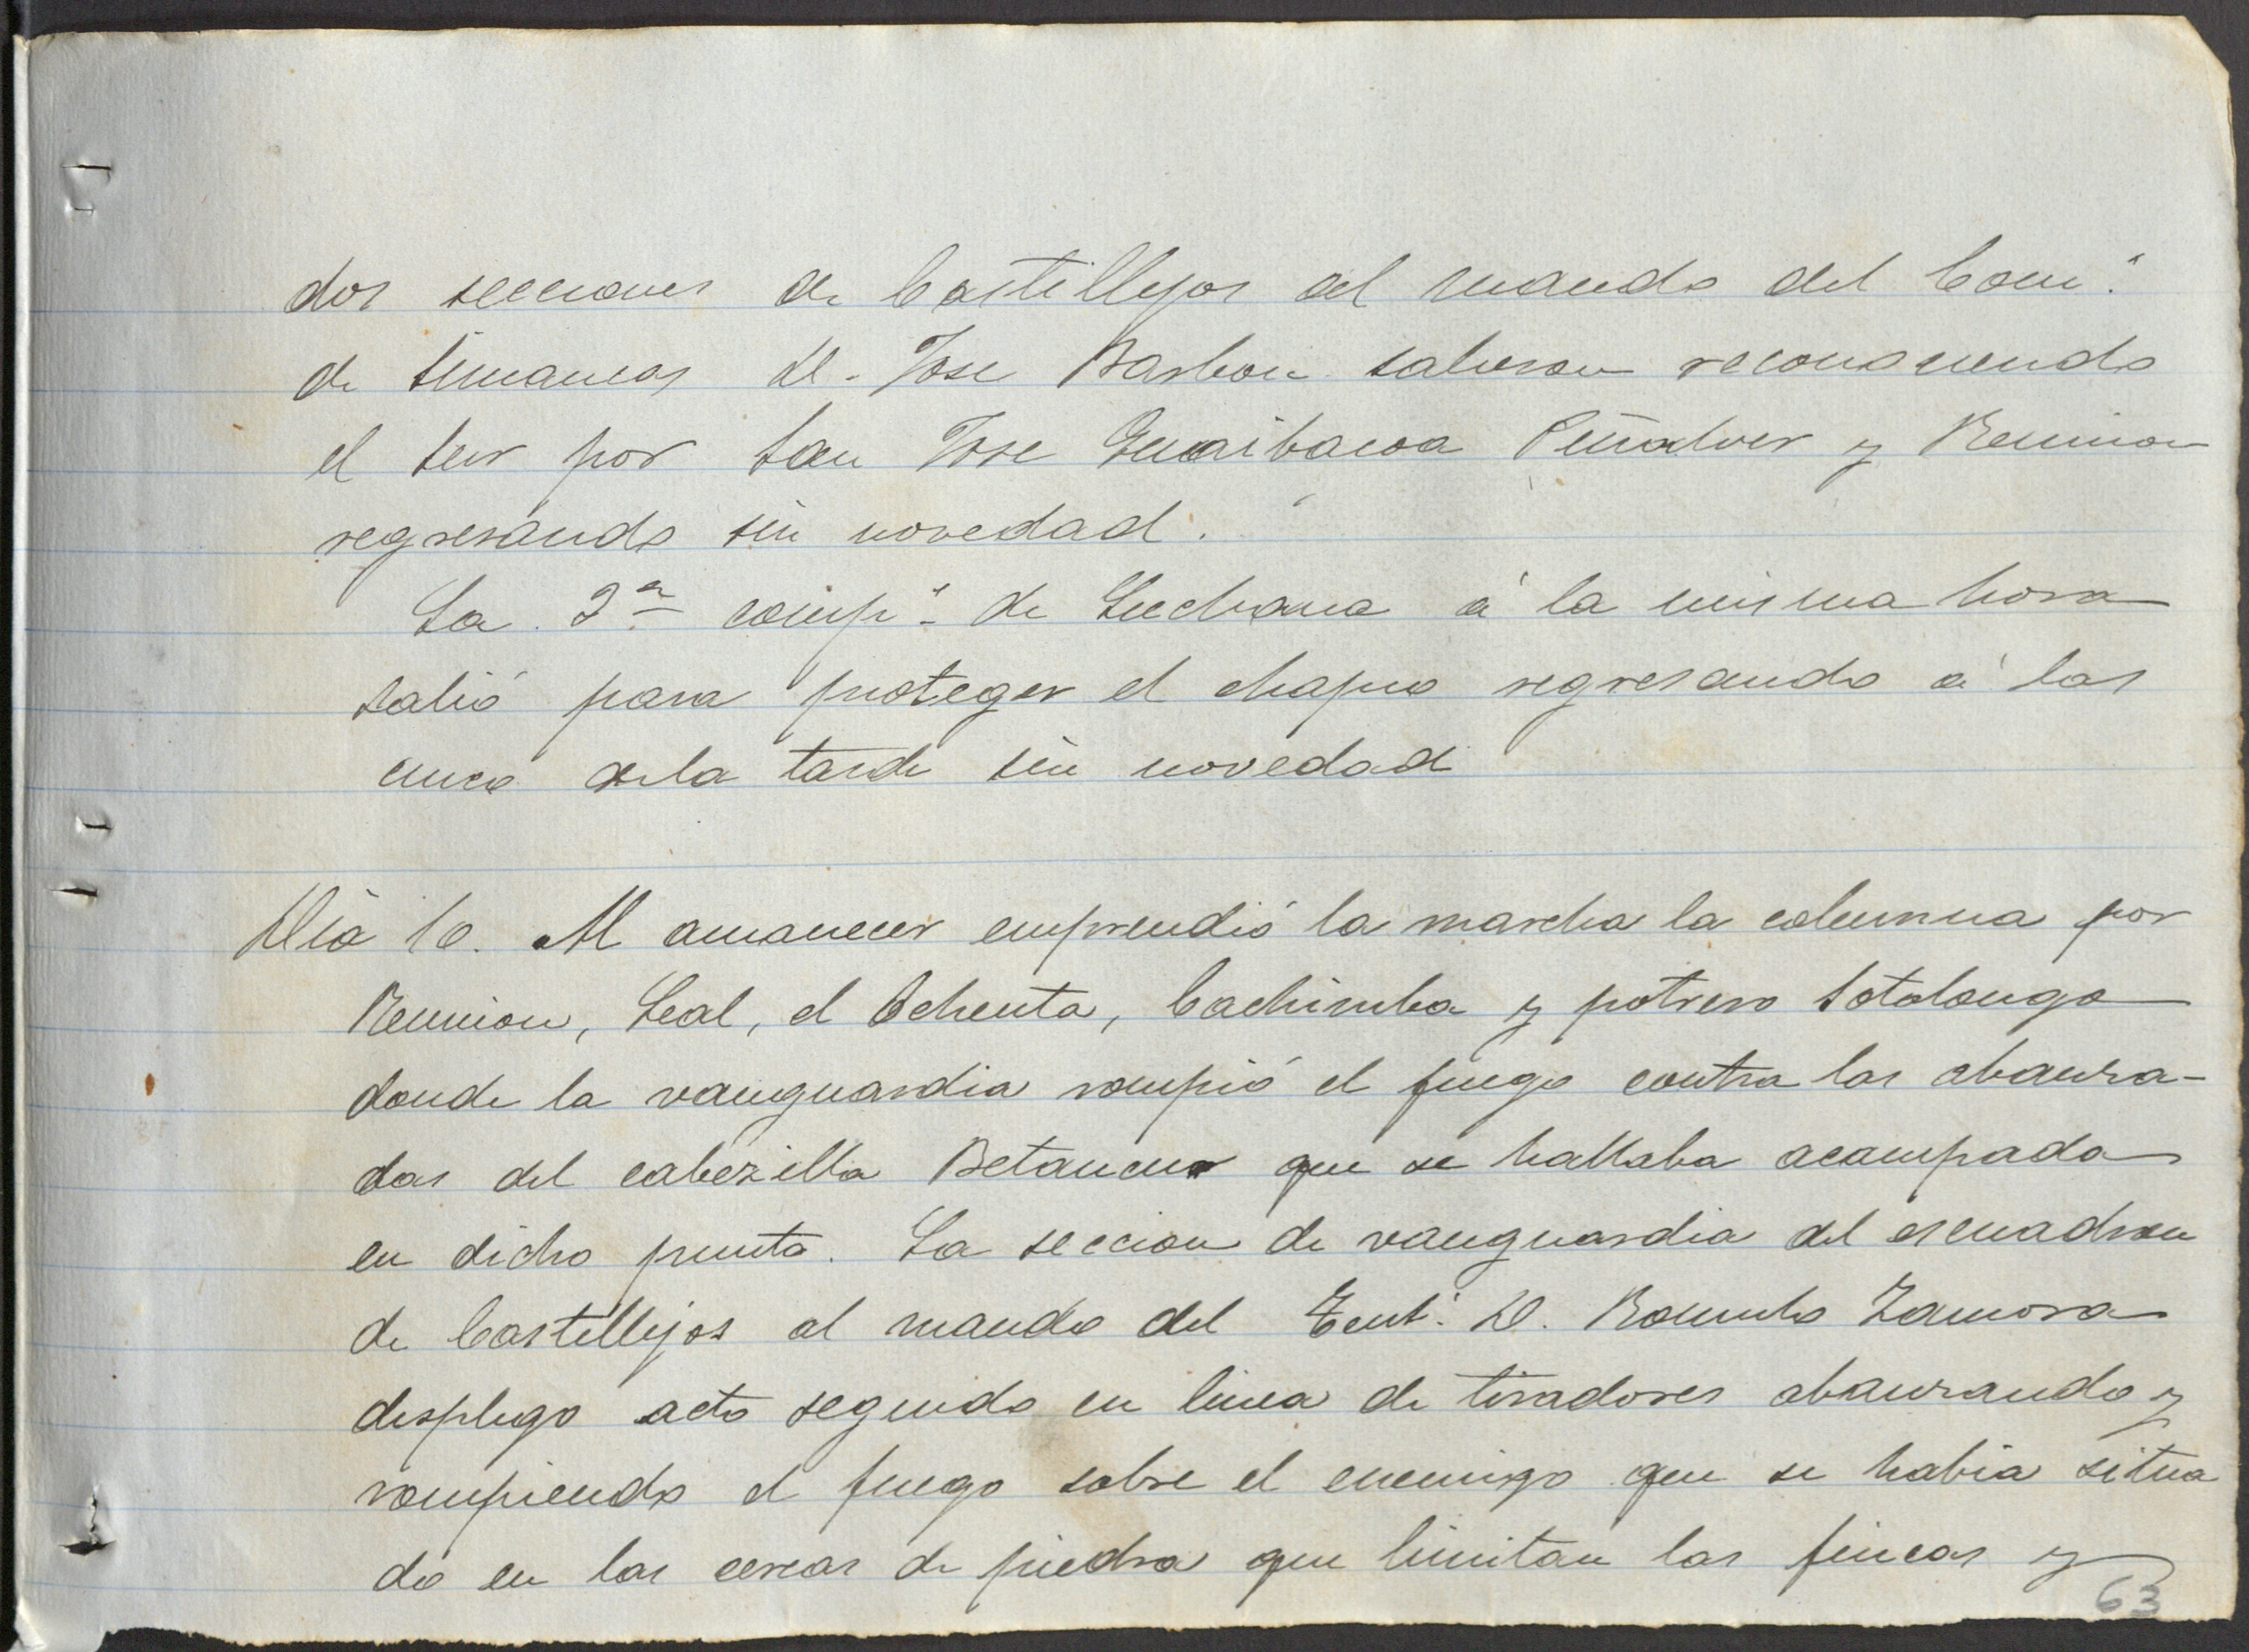 dos secciones de Castillejos al mando del Com.e
de Simancas D. Jose Barbon salieron reconociendo
el Sur por San Jose Guaibacoa Peñalver y Reunion
regresando sin novedad.
La 2ª comp.ª de Luchana á la misma hora
salió para proteger el chapeo regresando á las
cinco dela tarde sin novedad
Dia 10. Al amanecer emprendió la marcha la columna por
Reunion, Leal, el Ochenta, Cachimba y potrero Sotolongo
donde la vanguardia rompió el fuego contra las abanza-
das del cabezilla Betancur que se hallaba acampada
en dicho punto. La seccion de vanguardia del escuadron
de Castillejos al mando del Tent.e D. Romulo Zamora
desplego acto seguido en linea de tiradores abanzando y
rompiendo el fuego sobre el enemigo que se habia situa
do en las cercas de piedra que limitan las fincas y
63